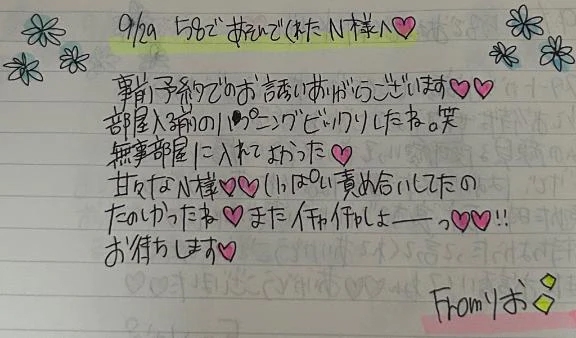 9/29 58であそんでくれたN様へ♥
事前予約でのお誘いありがとうございます♥♥
部屋入る前のハプニングビックリしたね。笑
無事部屋に入れてよかった♥
甘々なN様♥♥いっぱい責め合いしてたの
たのしかったね♥またイチャイチャしよーーっ♥♥!!
お待ちします♥
Fromりお